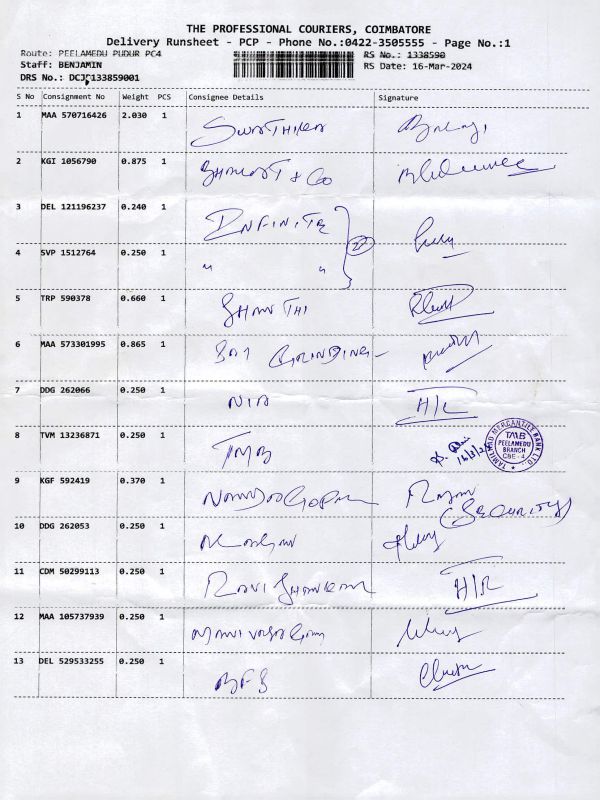 THE PROFESSIONAL COURIERS, COIMBATORE
Delivery Runsheet - PCP - Phone No.:0422-3505555 - Page No.:1
Route: PEELAMEDU PUDUR PC4
RS No.: 1338590
Staff: BENJAMIN
RS Date: 16-Mar-2024
DRS No.: DCJP133859001
S No Consignment No Weight PCS Consignee Details Signature
1 MAA 570716426 2.030 1 SWATHIKA
2 KGI 1056790 0.875 1 & Co
3 DEL 121196237 0.240 1 INFINITE
4 SVP 1512764 0.250 1 " "
5 TRP 590378 0.660 1 SHANTHI
6 MAA 573301995 0.865 1 GRINDING
7 DDG 262066 0.250 1 NIA H/R
8 TVM 13236871 0.250 1 TMB
TAMILNAD MERCANTILE BANK LTD.
TMB
PEELAMEDU
BRANCH
CBE-4
9 KGF 592419 0.370 1 NANDAGOPAL
(SECURITY)
10 DDG 262053 0.250 1
11 CDM 50299113 0.250 1 RAVI SHANKAR H/R
12 MAA 105737939 0.250 1
13 DEL 529533255 0.250 1